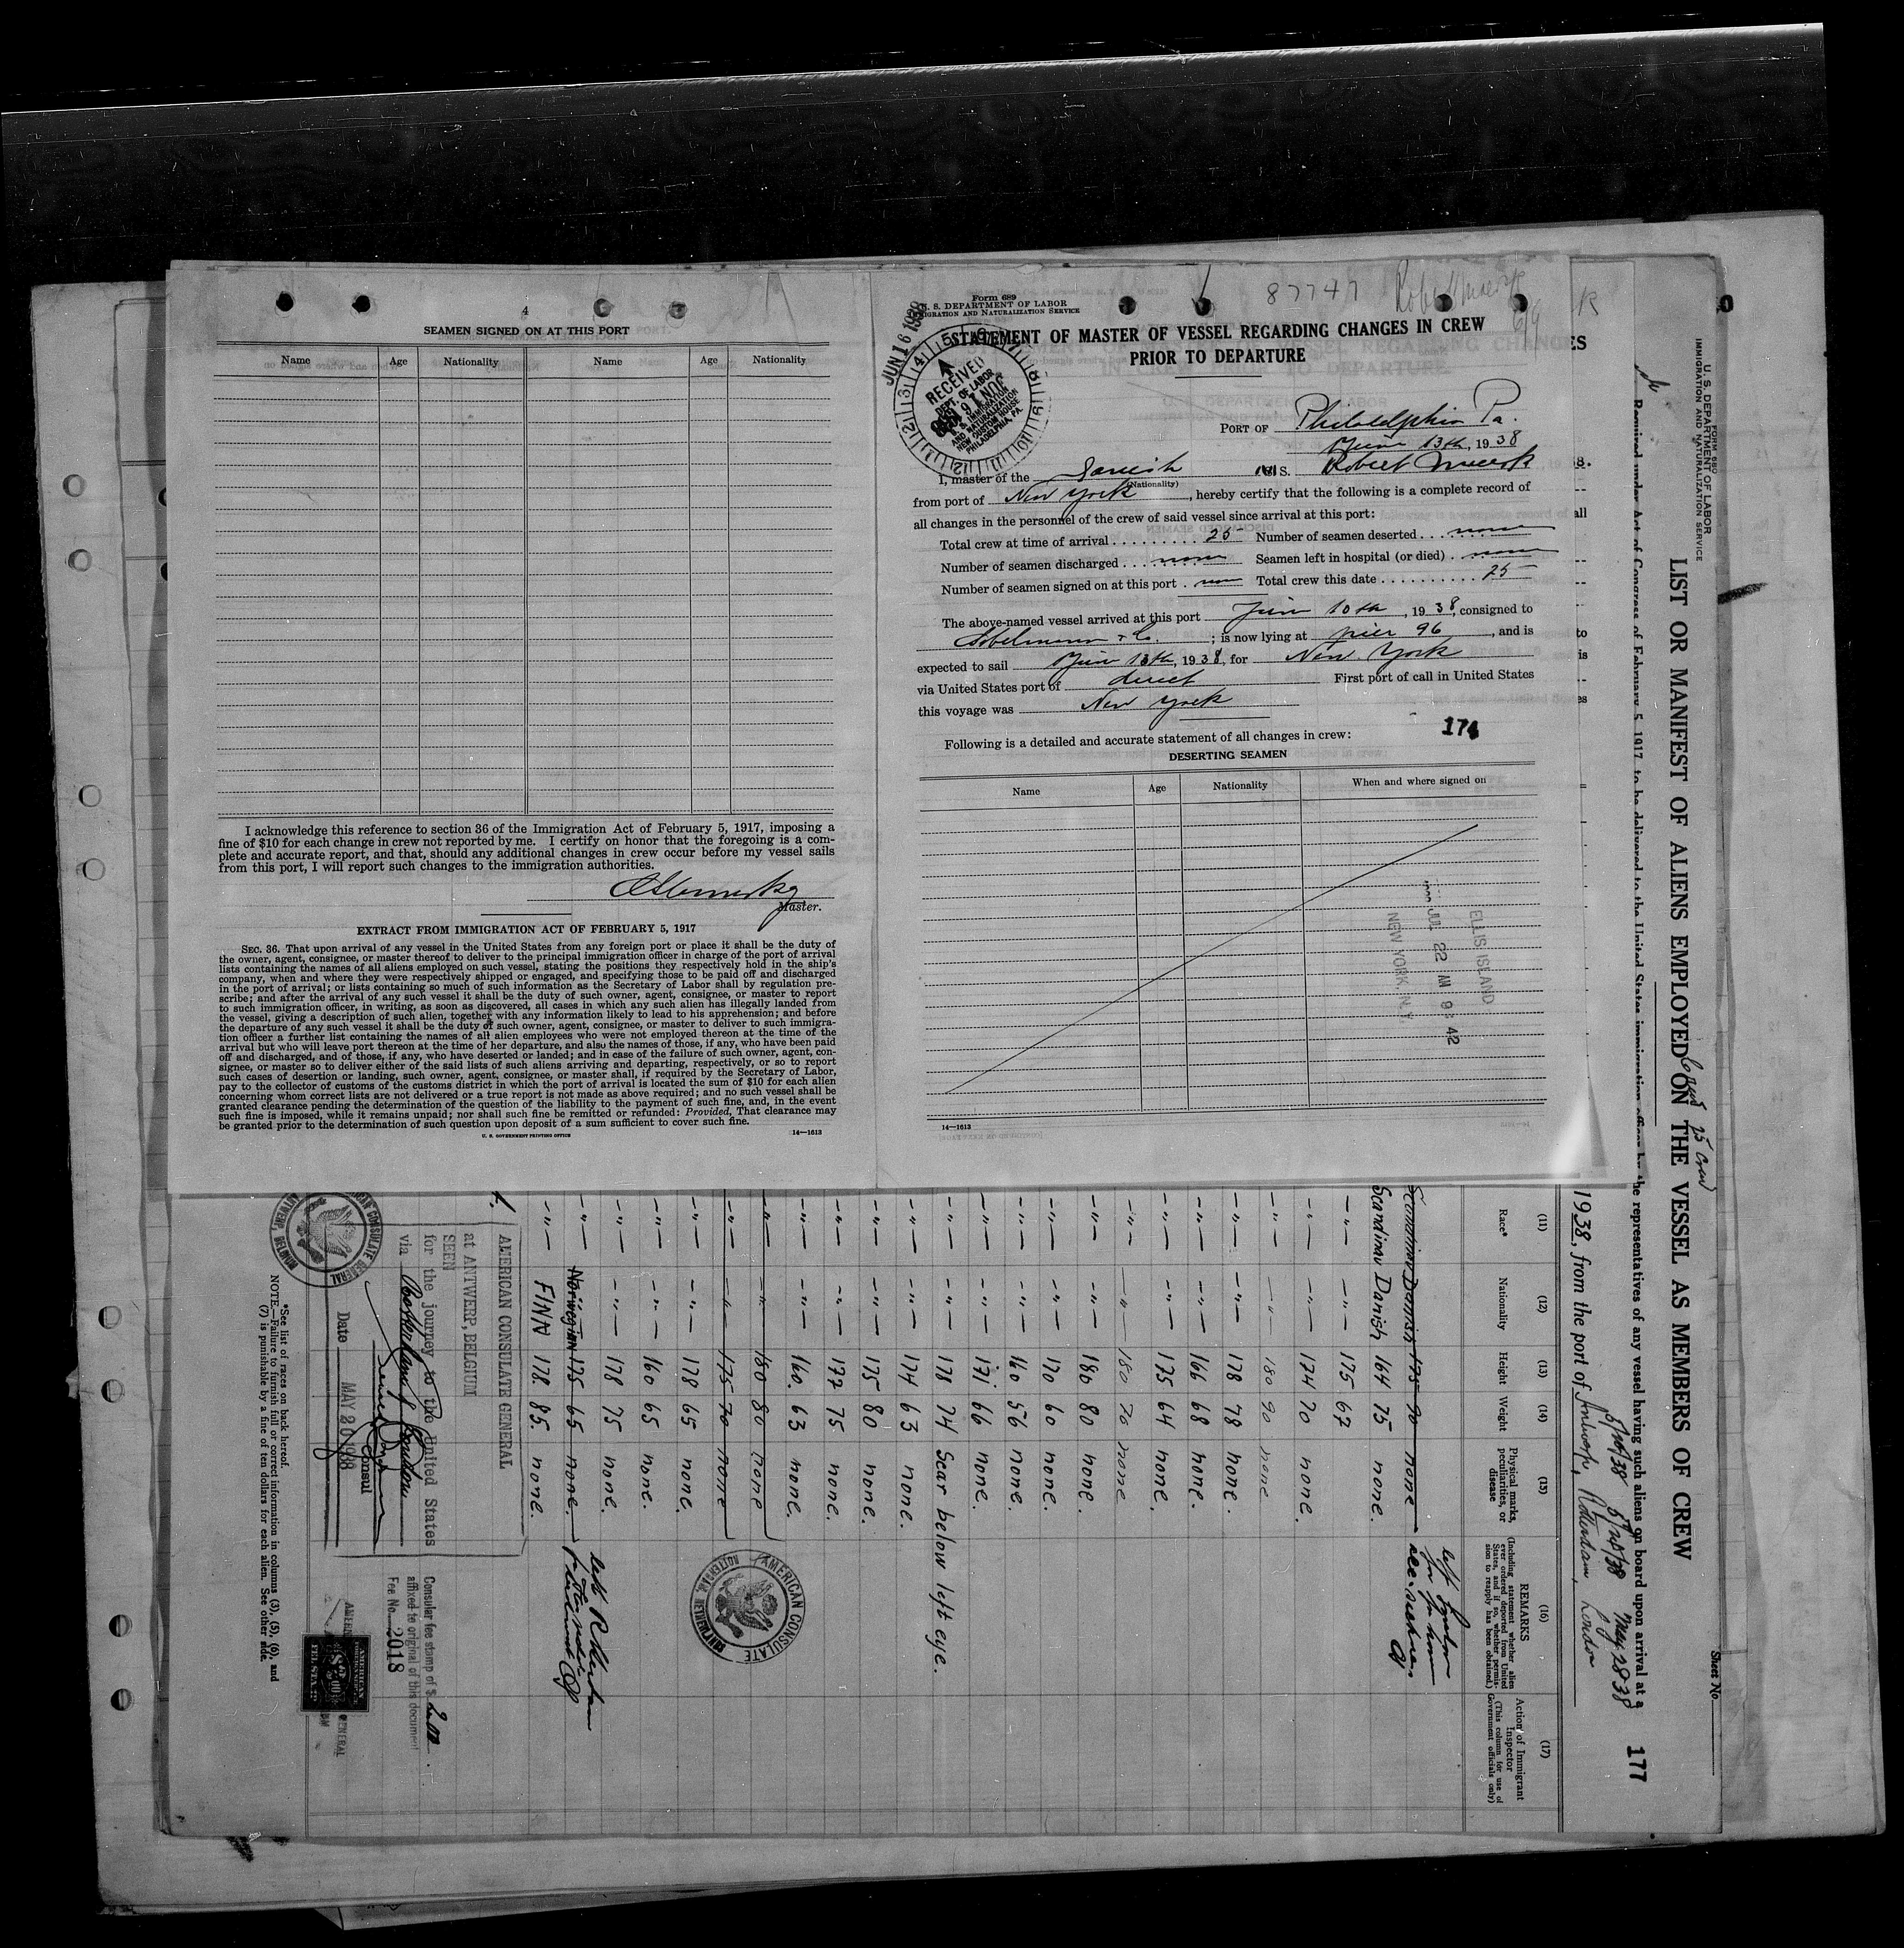 4
SEAMEN SIGNED ON AT THIS PORT
Name Age Nationality Name Age Nationality
I acknowledge this reference to section 36 of the Immigration Act of February 5, 1917, imposing a
fine of $10 for each change in crew not reported by me. I certify on honor that the foregoing is a com-
plete and accurate report, and that, should any additional changes in crew occur before my vessel sails
from this port, I will report such changes to the immigration authorities.
Master.
EXTRACT FROM IMMIGRATION ACT OF FEBRUARY 5, 1917
SEC. 36. That upon arrival of any vessel in the United States from any foreign port or place it shall be the duty of
the owner, agent, consignee, or master thereof to deliver to the principal immigration officer in charge of the port of arrival
lists containing the names of all aliens employed on such vessel, stating the positions they respectively hold in the ship's
company, when and where they were respectively shipped or engaged, and specifying those to be paid off and discharged
in the port of arrival; or lists containing so much of such information as the Secretary of Labor shall by regulation pre-
scribe; and after the arrival of any such vessel it shall be the duty of such owner, agent, consignee, or master to report
to such immigration officer, in writing, as soon as discovered, all cases in which any such alien has illegally landed from
the vessel, giving a description of such alien, together with any information likely to lead to his apprehension; and before
the departure of any such vessel it shall be the duty of such owner, agent, consignee, or master to deliver to such immigra-
tion officer a further list containing the names of all alien employees who were not employed thereon at the time of the
arrival but who will leave port thereon at the time of her departure, and also the names of those, if any, who have been paid
off and discharged, and of those, if any, who have deserted or landed; and in case of the failure of such owner, agent, con-
signee, or master so to deliver either of the said lists of such aliens arriving and departing, respectively, or so to report
such cases of desertion or landing, such owner, agent, consignee, or master shall, if required by the Secretary of Labor,
pay to the collector of customs of the customs district in which the port of arrival is located the sum of $10 for each alien
concerning whom correct lists are not delivered or a true report is not made as above required; and no such vessel shall be
granted clearance pending the determination of the question of the liability to the payment of such fine, and, in the event
such fine is imposed, while it remains unpaid; nor shall such fine be remitted or refunded: Provided, That clearance may
be granted prior to the determination of such question upon deposit of a sum sufficient to cover such fine.
U. S. GOVERNMENT PRINTING OFFICE 14—1613
87747 Robert Maersk 6/9
Form 689
U. S. DEPARTMENT OF LABOR
IMMIGRATION AND NATURALIZATION SERVICE
STATEMENT OF MASTER OF VESSEL REGARDING CHANGES IN CREW
PRIOR TO DEPARTURE
JUN 16 1938
RECEIVED
DEPT. OF LABOR
U. S. IMMIGRATION
AND NATURALIZATION
NEW CUSTOM HOUSE
PHILADELPHIA, PA.
PORT OF Philadelphia Pa.
June 13th, 1938
I, master of the Danish S. Robert Maersk
(Nationality)
from port of New York, hereby certify that the following is a complete record of
all changes in the personnel of the crew of said vessel since arrival at this port:
Total crew at time of arrival 25 Number of seamen deserted none
Number of seamen discharged none Seamen left in hospital (or died) none
Number of seamen signed on at this port none Total crew this date 25
The above-named vessel arrived at this port June 10th, 1938, consigned to
& Co.; is now lying at pier 96, and is
expected to sail June 13th, 1938, for New York
via United States port of direct First port of call in United States
this voyage was New York
174
Following is a detailed and accurate statement of all changes in crew:
DESERTING SEAMEN
Name Age Nationality When and where signed on
ELLIS ISLAND
JUL 22 AM 9:42
NEW YORK, N.Y.
14—1613
Sheet No.
FORM 680
U. S. DEPARTMENT OF LABOR
IMMIGRATION AND NATURALIZATION SERVICE
LIST OR MANIFEST OF ALIENS EMPLOYED ON THE VESSEL AS MEMBERS OF CREW
25 crew
Required under Act of Congress of February 5, 1917, to be delivered to the United States immigration officer by the representatives of any vessel having such aliens on board upon arrival at a
177
5/20/38 May 28-38
1938, from the port of Antwerp, Rotterdam, London
(11) (12) (13) (14) (15) (16) (17)
Race* Nationality Height Weight Physical marks, peculiarities, or disease
REMARKS
(Including statement whether alien ever ordered deported from United States, and if so, whether permission to reapply has been obtained.)
Action of Immigrant Inspector
(This column for use of Government officials only)
Scandinav Danish 175 70 none
Scandinav Danish 164 75 none.
—"— —"— 175 67
—"— —"— 174 70 none.
—"— —"— 180 90 none
—"— —"— 178 78 none.
—"— —"— 166 68 none.
—"— —"— 175 64 none.
—"— —"— 180 70 none
—"— —"— 180 80 none.
—"— —"— 170 60 none.
—"— —"— 160 56 none.
—"— —"— 171 66 none.
—"— —"— 178 74 Scar below left eye.
—"— —"— 174 63 none.
—"— —"— 175 80 none.
—"— —"— 177 75 none.
—"— —"— 160. 63 none.
—"— —"— 180 80 none
—"— —"— 175 70 none
—"— —"— 178 65 none.
—"— —"— 160 65 none.
—"— —"— 178 75 none.
—"— Norwegian 175 65 none.
—"— FINN 178. 85. none.
AMERICAN CONSULATE
ROTTERDAM, NETHERLANDS
AMERICAN CONSULATE GENERAL
at ANTWERP, BELGIUM
SEEN
for the journey to the United States
via Rotterdam & London
Consul
Date MAY 20 1938
AMERICAN CONSULATE GENERAL
ANTWERP, BELGIUM
Consular fee stamp of $ 2.00
affixed to original of this document
Fee No. 2018
*See list of races on back hereof.
NOTE.—Failure to furnish full or correct information in columns (3), (5), (6), and
(7) is punishable by a fine of ten dollars for each alien. See other side.